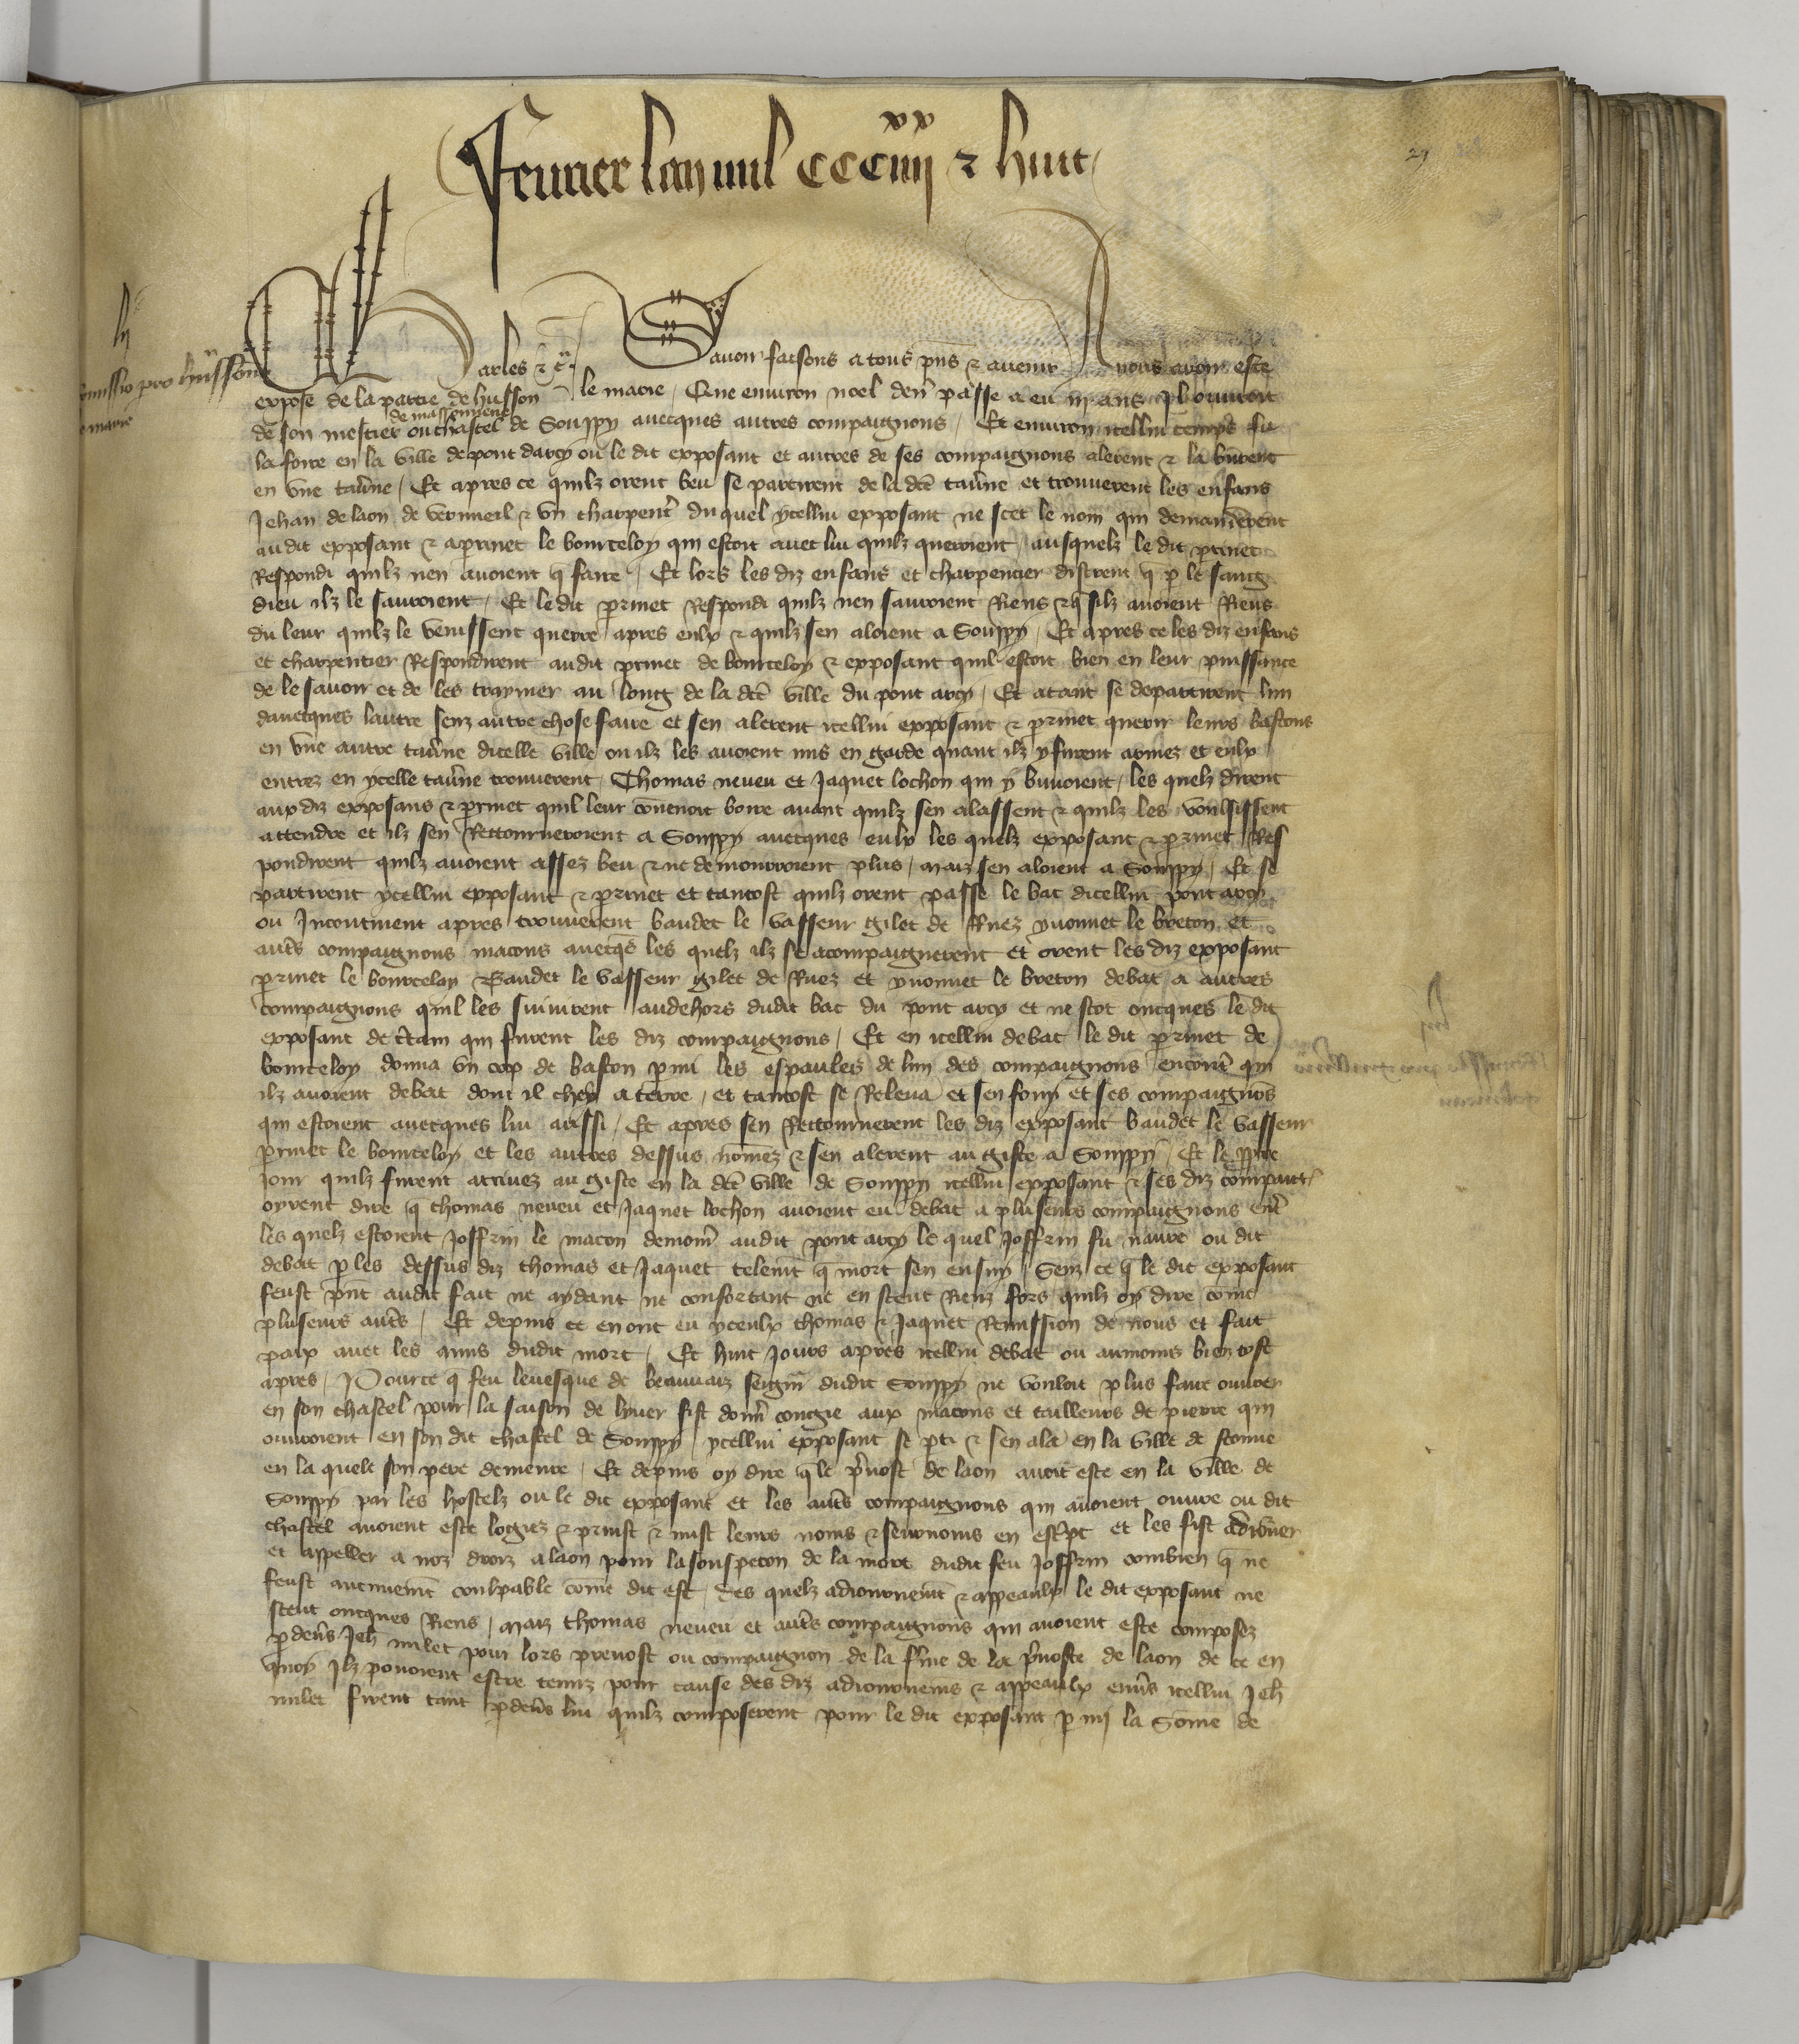 Feurier lan mil CCCiiii xx & huit
29
Remissio pro hussono
le macie
Charles &c. Sauoir faisons a tous pns & auenir A nous auoir este
expose de la partie de husson le macie / Que enuiron noel dern passe a eu iii ans Il ouuroit
de son mestier de massonnerie ou chastel de Souppy auecques autres compaignons / Et enuiron icellui temps fu
la foire en la ville de pont darcy ou le dit exposant et autres de ses compaignons alerent & la burent
en vne taune / Et apres ce quilz orent beu se partirent de la dce taune et trouuerent les enfans
Jehan de laon de vernueil & vn charpent duquel ycellui exposant ne scet le nom qui demanderent
au dit exposant & a prinet le bourceloy qui estoit auec lui quilz queroient / ausquelz le dit prinet
Respondi quilz nen auoient q faire / Et lors les diz enfans et charpentier distrent q p le sang
dieu ilz le sauroient / Et le dit prinet Respondi quilz nen sauroient Riens & q silz auoient Riens
du leur quilz le venissent querre apres eulx & quilz sen aloient a Souppy / Et apres ce les diz enfans
et charpentier Respondirent au dit prinet de bourceloy & exposant quil estoit bien en leur puissance
de le sauoir et de les traymer au long de la dce ville du pont arcy / Et atant se departirent lun
dauecques lautre senz autre chose faire et sen alerent icellui exposant & prinet querir leurs bastons
en vne autre taune dicelle ville ou ilz les auoient mis en garde quant ilz y furent arriuez et eulx
entrez en ycelle taune trouuerent Thomas neueu et Jaquet lochon qui y buuoient / les quelz dirent
aux diz exposans & prinet quil leur couenoit boire auant quilz sen alassent & quilz les voulsissent
attendre et ilz sen Rettourneroient a Souppy auecques eulx les quelz exposant & prinet Res
pondirent quilz auoient assez beu & ne demourroient plus / maiz sen aloient a Souppy / Et se
partirent ycellui exposant & prinet et tantost quilz orent passe le bac dicellui pont arcy
ou Incontinent apres trouuerent baudet le vasseur gilet de Ruez yuonnet le breton et
auts compaignons macons auecqs les quelz ilz se acompaignerent et orent les diz exposant
prinet le bourceloy Baudet le vasseur gilet de Ruez et yuonnet le breton debat a autres
compaignons quil les suiuirent audehors dudit bac du pont arcy et ne scot oncques le dit
exposant de ctain qui furent les diz compaignons / Et en icellui debat le dit prinet de
bourceloy donna vn cop de baston pmi les espaules de lun des compaignons encont qui
ilz auoient debat dont il chey a terre / et tantost se Releua et sen fouy et ses compaignos
qui estoient auecques lui aussi / Et apres sen Rettournerent les diz exposant baudet le vasseur
prinet le bourceloy et les autres dessus nomez & sen alerent au giste a Souppy / Et le ppre
iour quilz furent arriuez au giste en la dce ville de Souppy icellui exposant & ses diz compaig
oyrent dire q thomas neueu et Jaquet lochon auoient eu debat a pluseurs compaignons ent
les quelz estoient Joffrin le macon demour audit pont arcy le quel Joffrin fu naure ou dit
debat p les dessus diz thomas et Jaquet telemt q mort sen ensuy / Senz ce q le dit exposant
feust pnt audit fait ne aydant ne confortant ne en sceut Rienz fors quilz oy dire come
pluseurs auts / Et depuis ce en ont eu yceulx thomas & Jaquet Remission de nous et fait
paix auec les amis dudit mort / Et huit Jours apres icellui debat ou aumoins bien tost
apres / Pource q feu leuesque de beauuaiz seigneur dudit Souppy ne vouloit plus faire ouurer
en son chastel pour la saison de yuer fist donn congie aux macons et tailleurs de pierre qui
ouuroient en son dit chastel de Souppy ycellui exposant se pti & sen ala en la ville de
en la quele son pere demeure / Et depuis oy dire q le puost de laon auoit este en la ville de
Souppy par les hostelz ou le dit exposant et les auts compaignons qui auoient ouure ou dit
chastel auoient este logiez & prinst & mist leurs noms & seurnoms en escpt et les fist adiourner
et appeller a noz droiz a laon pour la souspecon de la mort dudit feu Joffrin combien q ne
feust aucunemt coulpable come dit est / Des quelz adiournemt & appeaulx le dit exposant ne
sceut oncques Riens / maiz thomas neueu et auts compaignons qui auoient este composez
p deus Jeh milet pour lors preuost ou compaignon de la fme de la puoste de laon de ce en
quoy Ilz pouoient estre tenuz pour cause des diz adiournemens & appeaulx enuers icellui Jeh
milet firent tant pdeus lui quilz composerent pour le dit exposant p mi la Some de